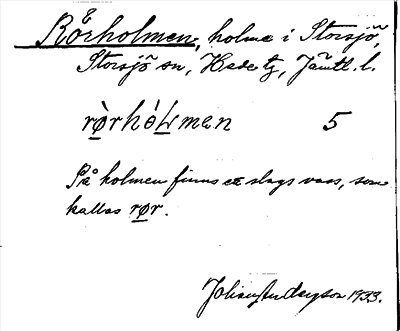 Rörholmen, holme i Storsjö,
Storsjö sn, Hede tg, Jämtl. l.
rø̀rhóLmen 5
På holmen finns ett slags vass, som
kallas rør.
Johan Andersson 1933.